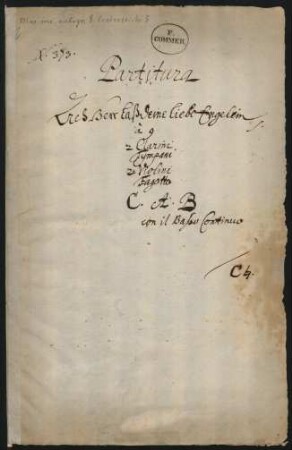 F.
COMMER.
N. 373.
Partitura
Herr laß deine liebe Engelein
à 9
2 Clarini
Tympani
2 Violini
Fagotto
C. A. B
con il Basso Continuo